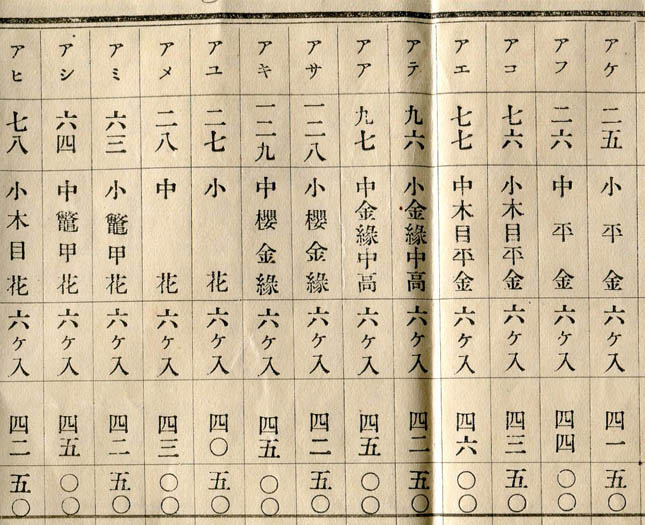 アケ 二五 小平金 六ケ入 四一 五〇
アフ 二六 中平金 六ケ入 四四 〇〇
アコ 七六 小木目平金 六ケ入 四三 五〇
アエ 七七 中木目平金 六ケ入 四六 〇〇
アテ 九六 小金緣中高 六ケ入 四二 五〇
アア 九七 中金緣中高 六ケ入 四五 〇〇
アサ 一二八 小櫻金緣 六ケ入 四二 五〇
アキ 一二九 中櫻金緣 六ケ入 四五 〇〇
アユ 二七 小花 六ケ入 四〇 五〇
アメ 二八 中花 六ケ入 四三 〇〇
アミ 六三 小鼈甲花 六ケ入 四二 五〇
アシ 六四 中鼈甲花 六ケ入 四五 〇〇
アヒ 七八 小木目花 六ケ入 四二 五〇